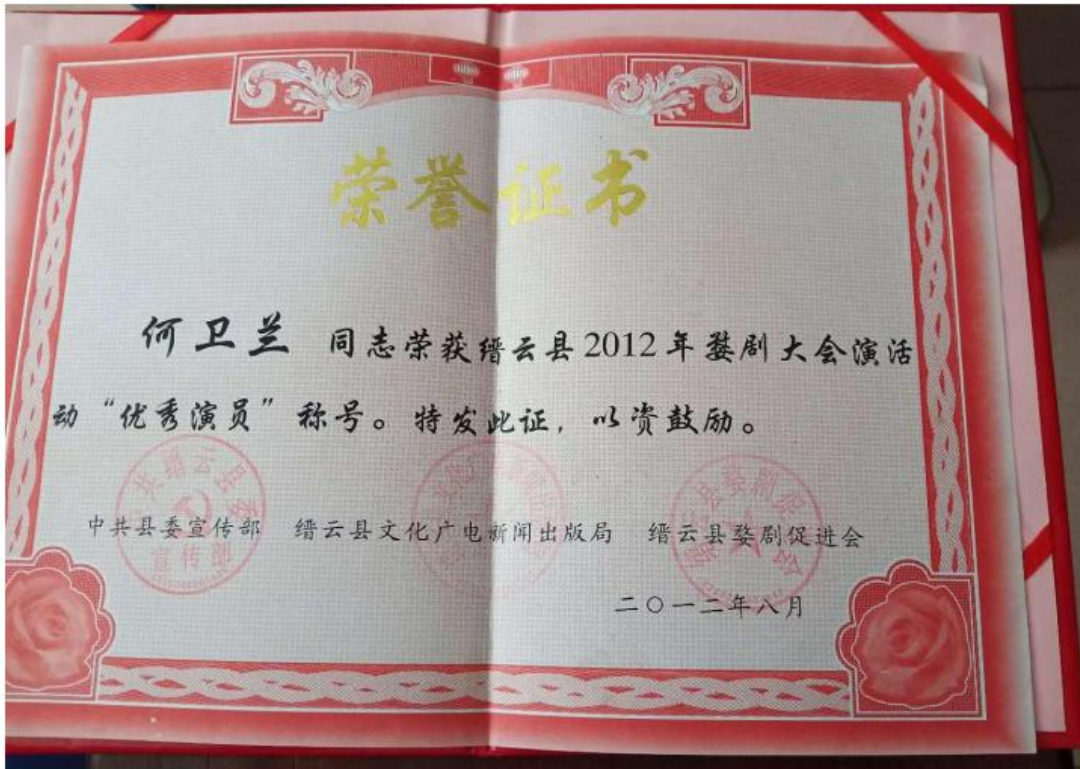 荣誉证书
何卫兰 同志荣获缙云县2012年婺剧大会演活
动“优秀演员”称号。特发此证，以资鼓励。
中共县委宣传部 缙云县文化广电新闻出版局 缙云县婺剧促进会
二〇一二年八月